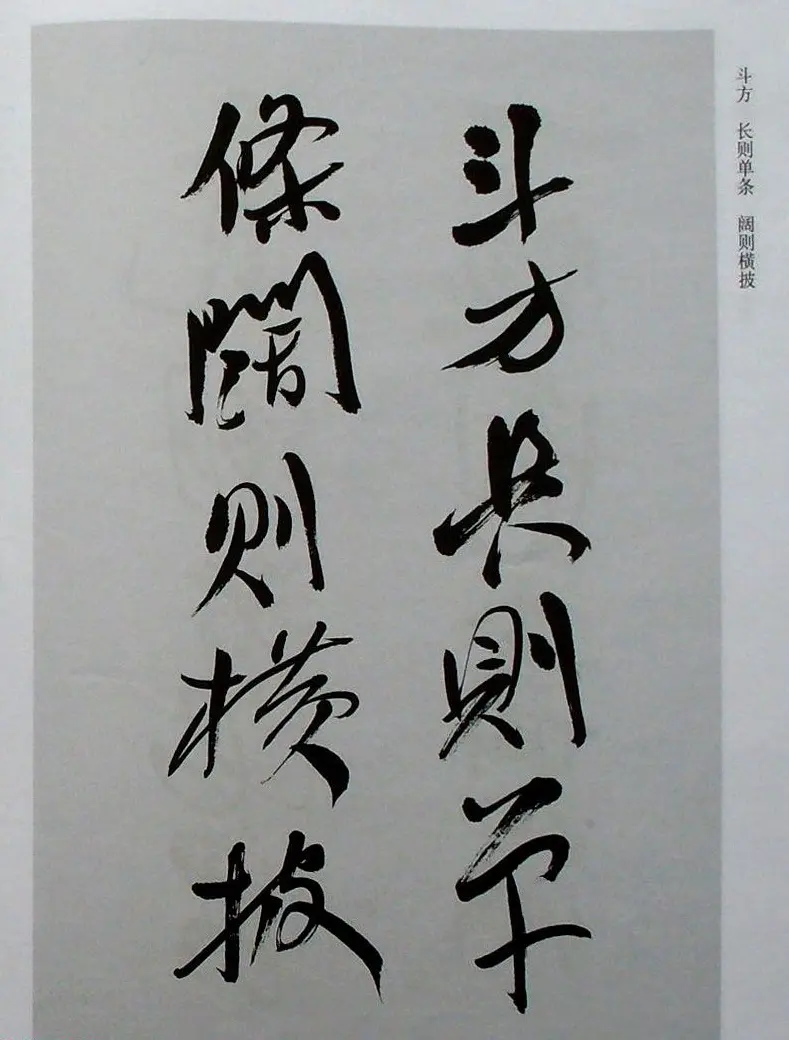 斗方 长则单条 阔则横披
斗方長則单
條闊则横披